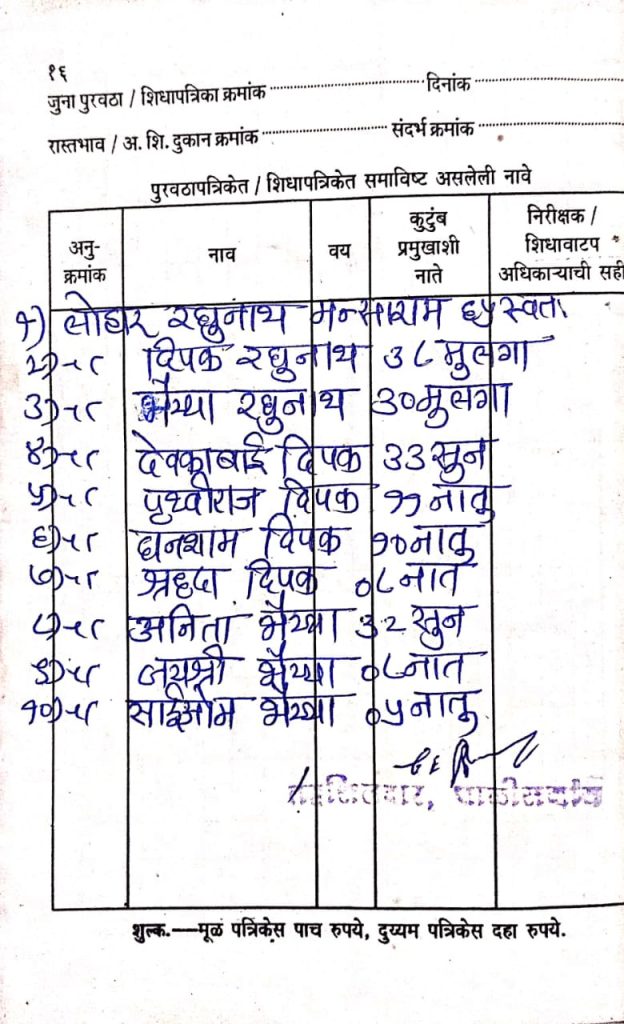 १६
जुना पुरवठा / शिधापत्रिका क्रमांक ................ दिनांक ................
रास्तभाव / अ. शि. दुकान क्रमांक ................ संदर्भ क्रमांक ................
पुरवठापत्रिकेत / शिधापत्रिकेत समाविष्ट असलेली नावे
अनु-क्रमांक नाव वय कुटुंब प्रमुखाशी नाते निरीक्षक / शिधावाटप अधिकाऱ्याची सही
१) लोहार रघुनाथ मन्साराम ६५ स्वता
२) -॥- दिपक रघुनाथ ३८ मुलगा
३) -॥- भैय्या रघुनाथ ३० मुलगा
४) -॥- देवकाबाई दिपक ३३ सुन
५) -॥- पृथ्वीराज दिपक ११ नातु
६) -॥- घनशाम दिपक १० नातु
७) -॥- श्रद्धा दिपक ०८ नात
८) -॥- अनिता भैय्या ३२ सुन
९) -॥- जयश्री भैय्या ०८ नात
१०) -॥- साईओम भैय्या ०५ नातु
तहसिलदार, चाळीसगांव
शुल्क.—मूळ पत्रिकेस पाच रुपये, दुय्यम पत्रिकेस दहा रुपये.